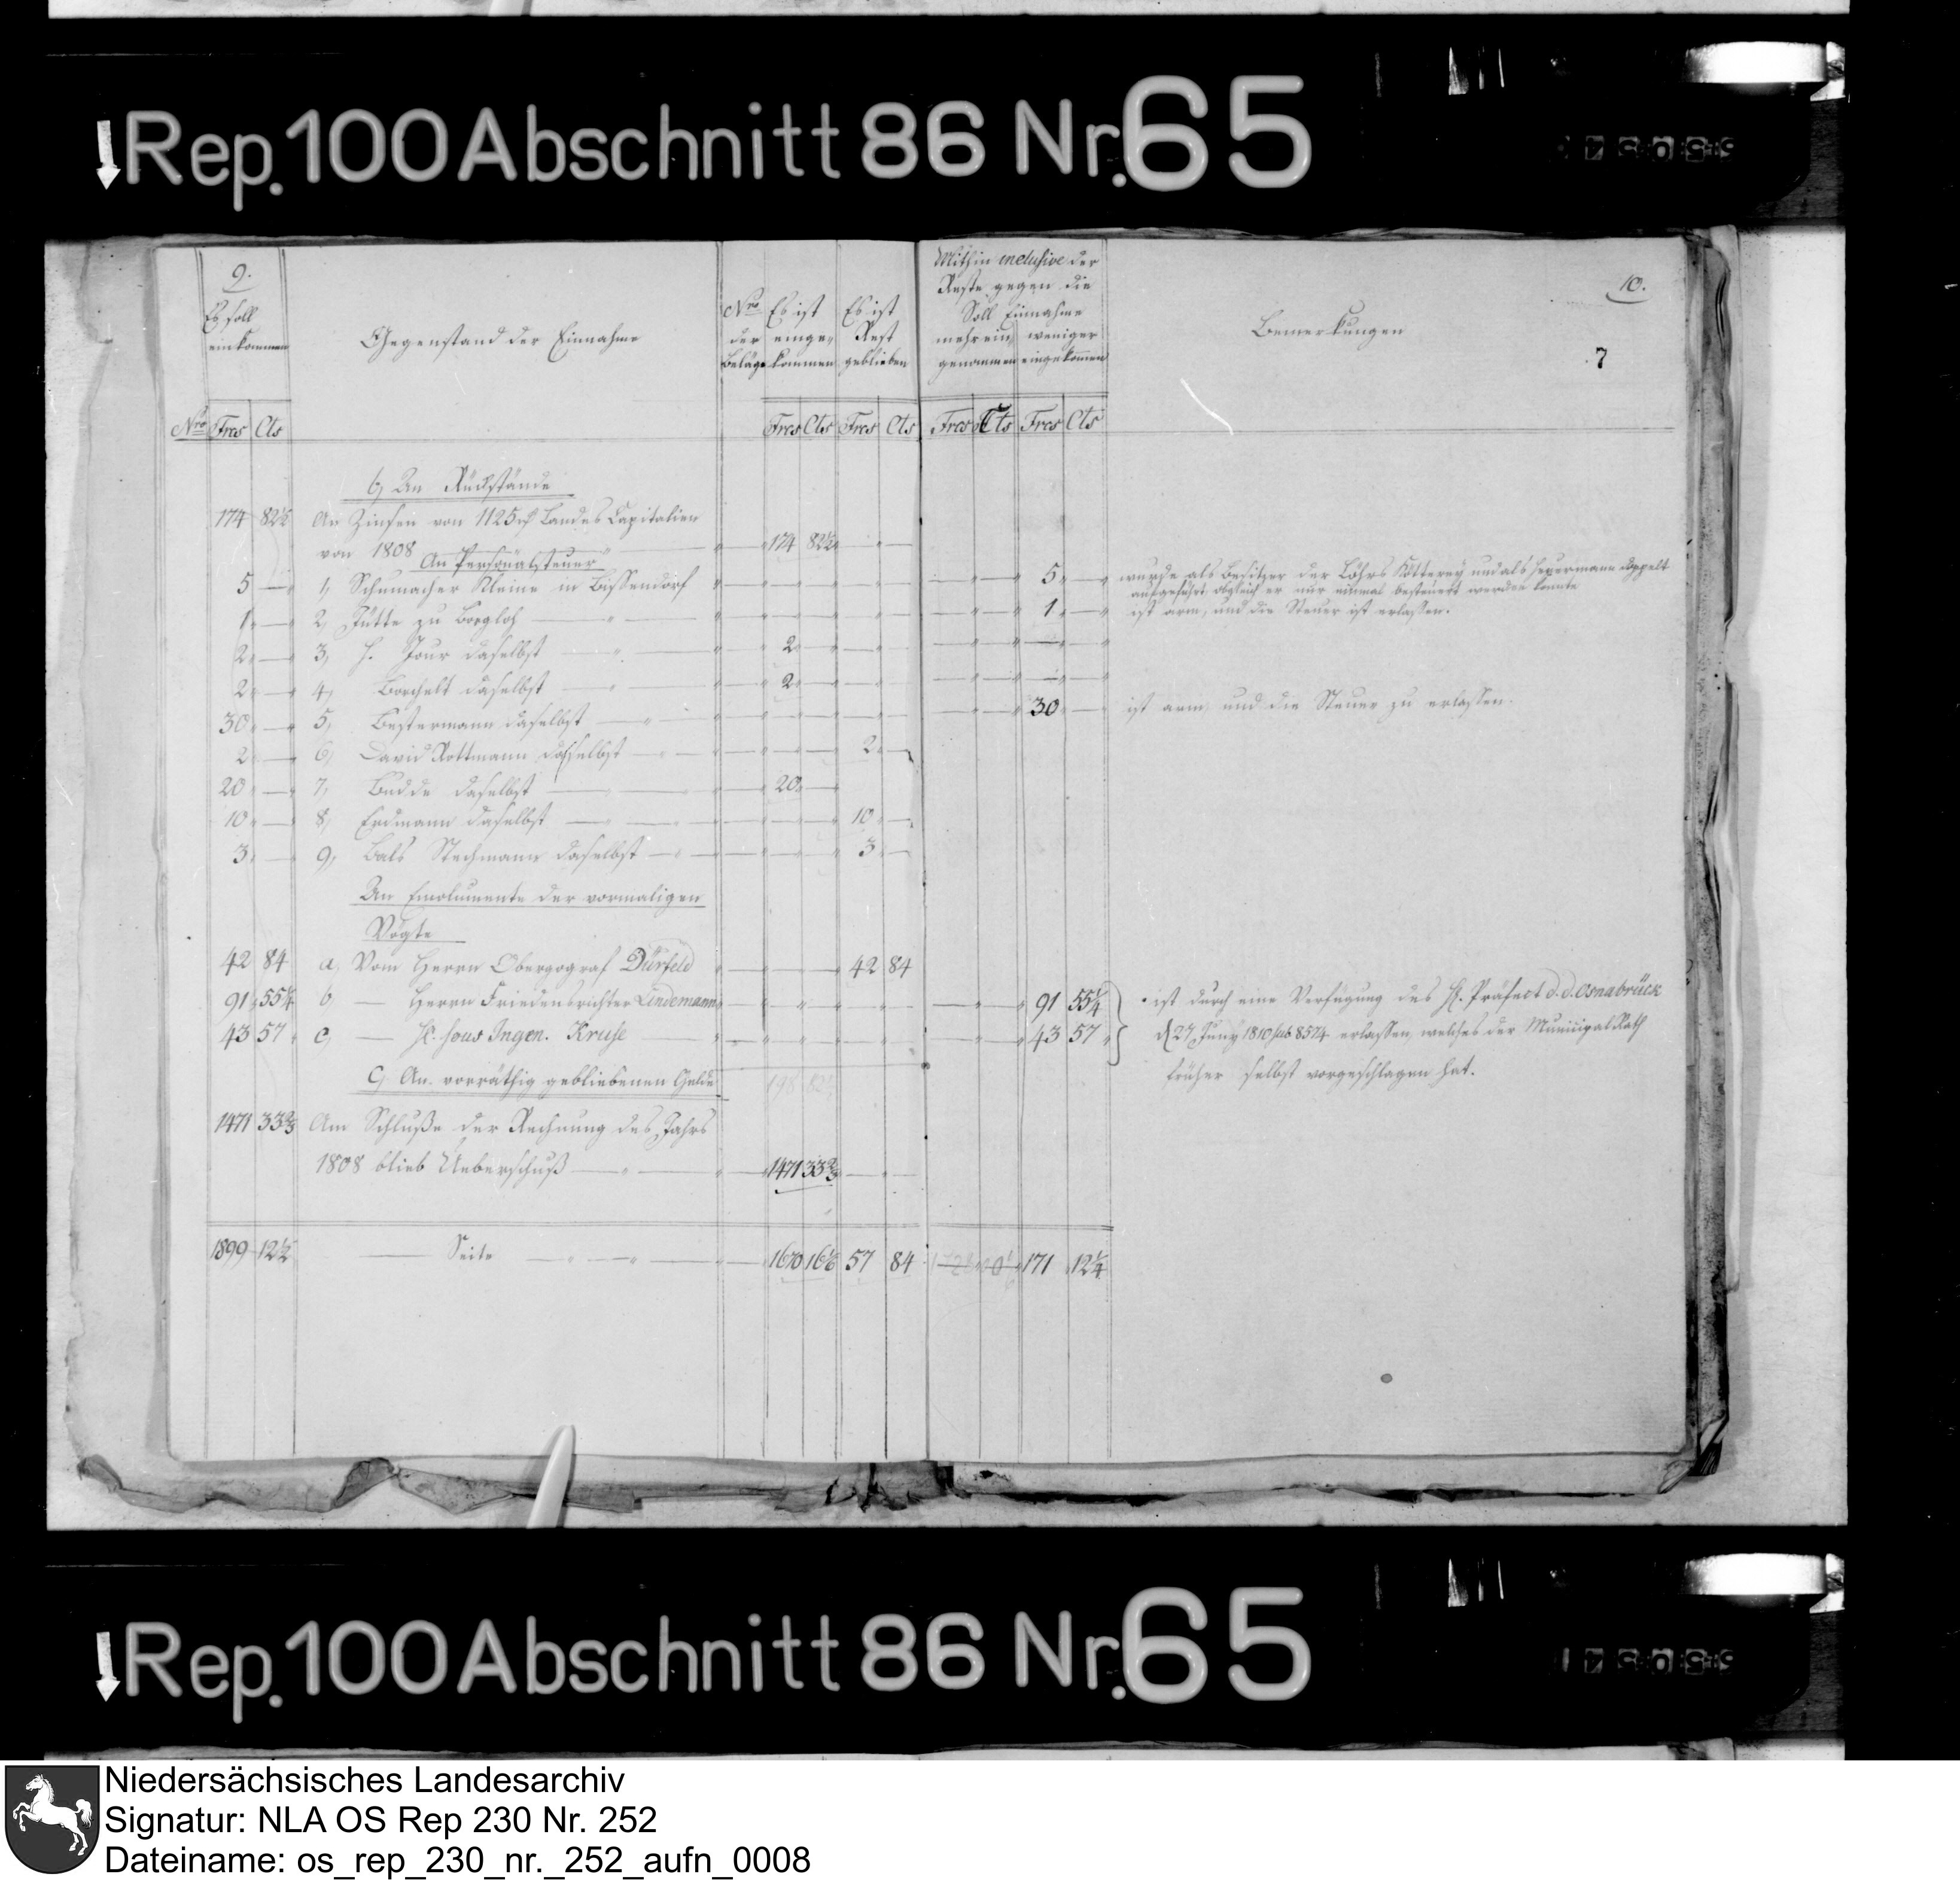 Rep. 100 Abschnitt 86 Nr. 65
9.
10.
7
Es soll einkommen
Gegenstand der Einnahme
Nro der Beläge
Es ist eingekommen
Es ist Rest geblieben
Mithin inclusive der Reste gegen die Soll Einnahme
mehr ein genommen
weniger eingekommen
Bemerkungen
Nro Frcs Cts Frcs Cts Frcs Cts Frcs Cts Frcs Cts
b, An Rückstände
174 82½ An Zinsen von 1125 rf Landes Capitalien
von 1808 — " — 174 82½
An Personalsteuer
5 — 1, Schumacher Kleine in Bissendorf 5 — wurde als Besitzer der Löhrs Kötterey und als Heuermann doppelt
aufgeführt, obgleich er nur einmal besteuert werden konnte
1 — 2, Jütte zu Borgloh — " — 1 — ist arm, und die Steuer ist erlassen.
2 — 3, H. daselbst — " — 2 —
2 — 4, Borchelt daselbst — " — 2 —
30 — 5, Bestermann daselbst — " — 30 — ist arm und die Steuer zu erlassen.
2 — 6, David Rottmann daselbst — 2 —
20 — 7, Budde daselbst — 20 —
10 — 8, Erdmann daselbst — " — 10 —
3 — 9, Bals Stechmann daselbst — " — 3 —
An Emolumente der vormaligen
Vögte
42 84 a, Vom Herrn Obergograf Dürfeld 42 84
91 55¼ b, — Herrn Friedensrichter Lindemann 91 55¼ ist durch eine Verfügung des H. Präfect d. d. Osnabrück
43 57 c, — H. Ingen. Kruse 43 57 d 27 Juny 1810 sub 8574 erlassen, welches der Municipal Rath
früher selbst vorgeschlagen hat.
c, An vorräthig gebliebenen Gelde
198 82½
1471 33⅔ Am Schluße der Rechnung des Jahrs
1808 blieb Ueberschuß — " — 1471 33⅔
1899 12½ — Seite — " — 1670 16⅙ 57 84 171 12¼
Rep. 100 Abschnitt 86 Nr. 65
Niedersächsisches Landesarchiv
Signatur: NLA OS Rep 230 Nr. 252
Dateiname: os_rep_230_nr._252_aufn_0008